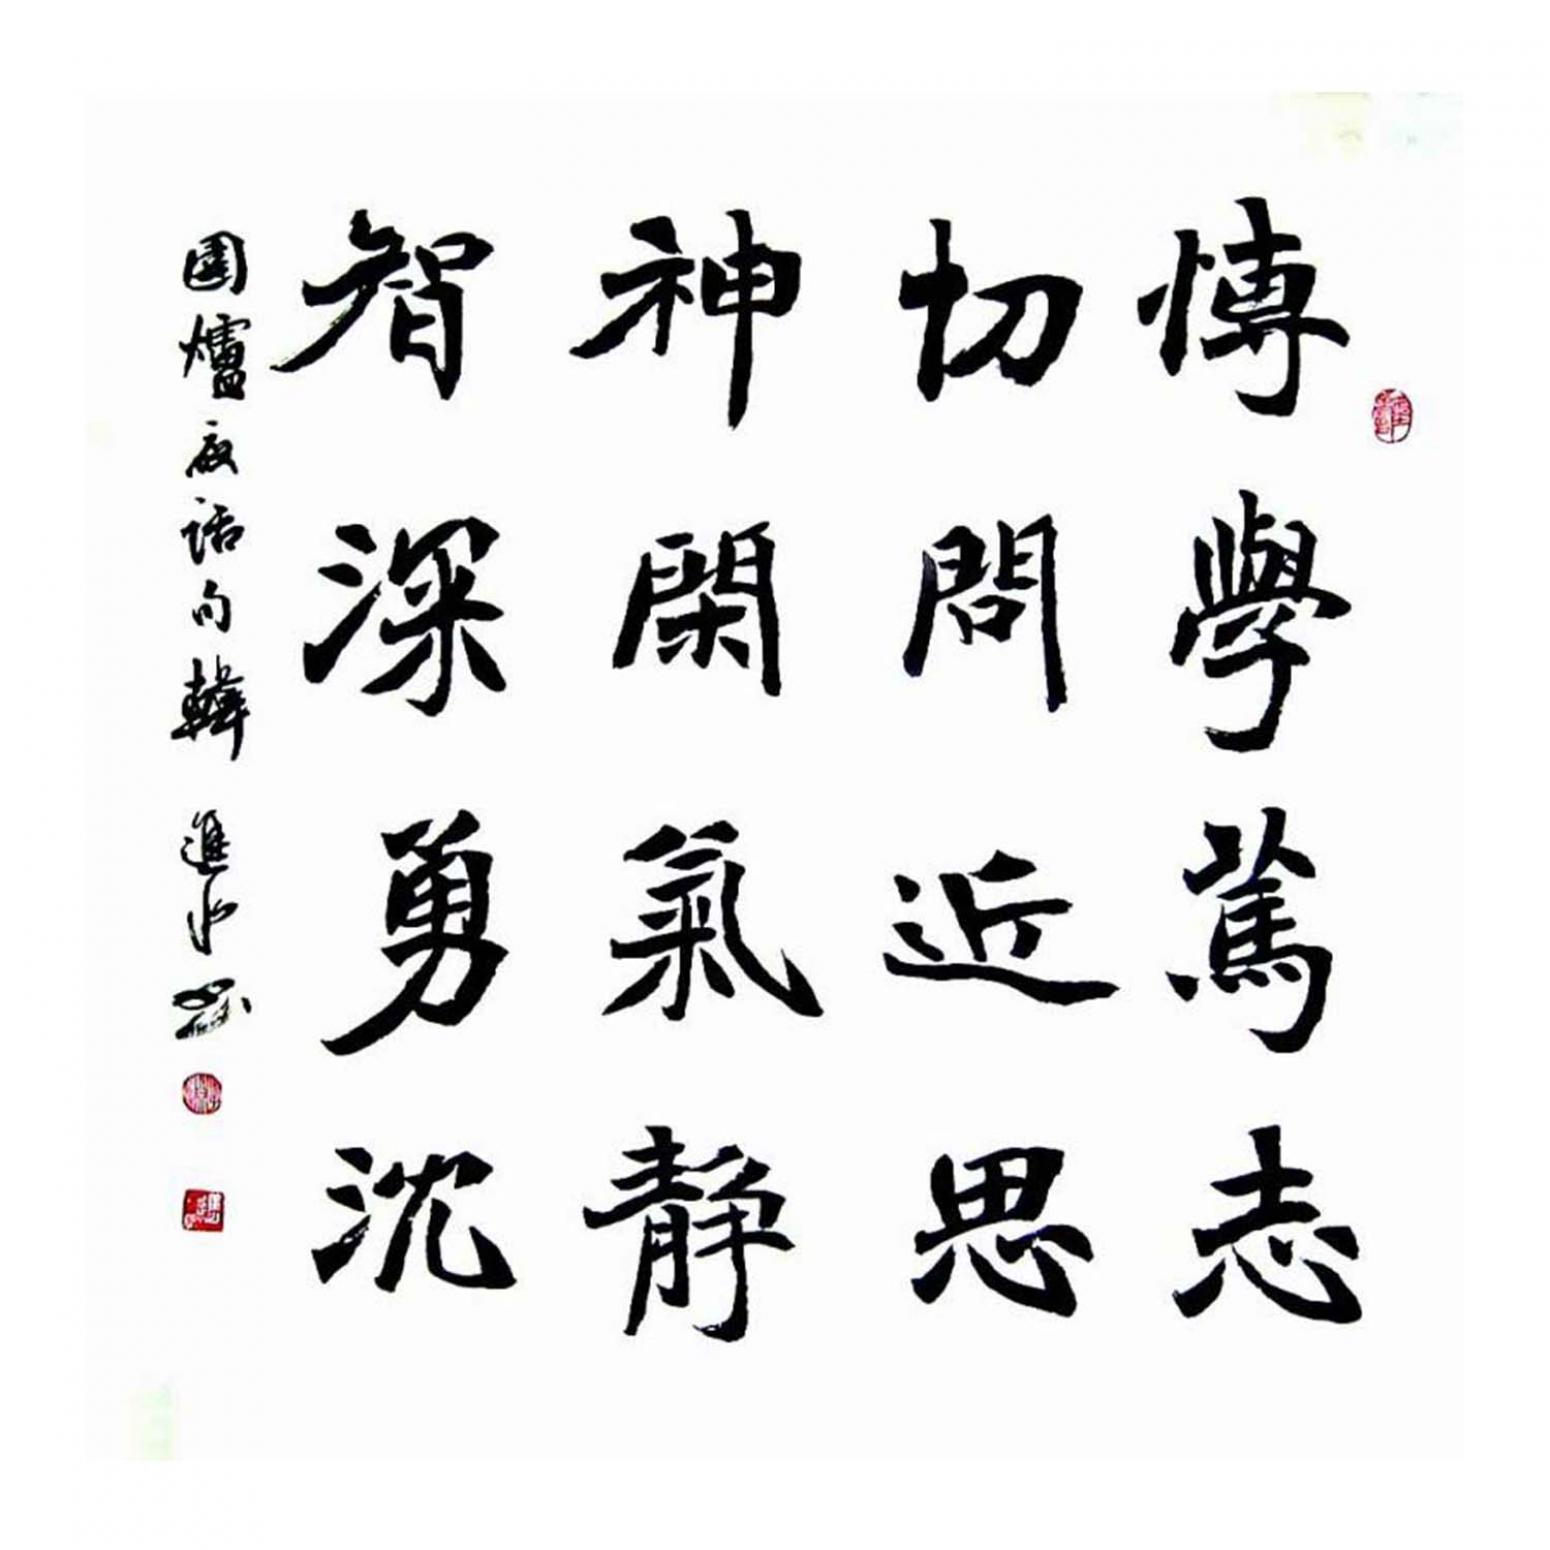 博學篤志
切問近思
神閑氣靜
智深勇沈
圍爐夜話句韓進水書